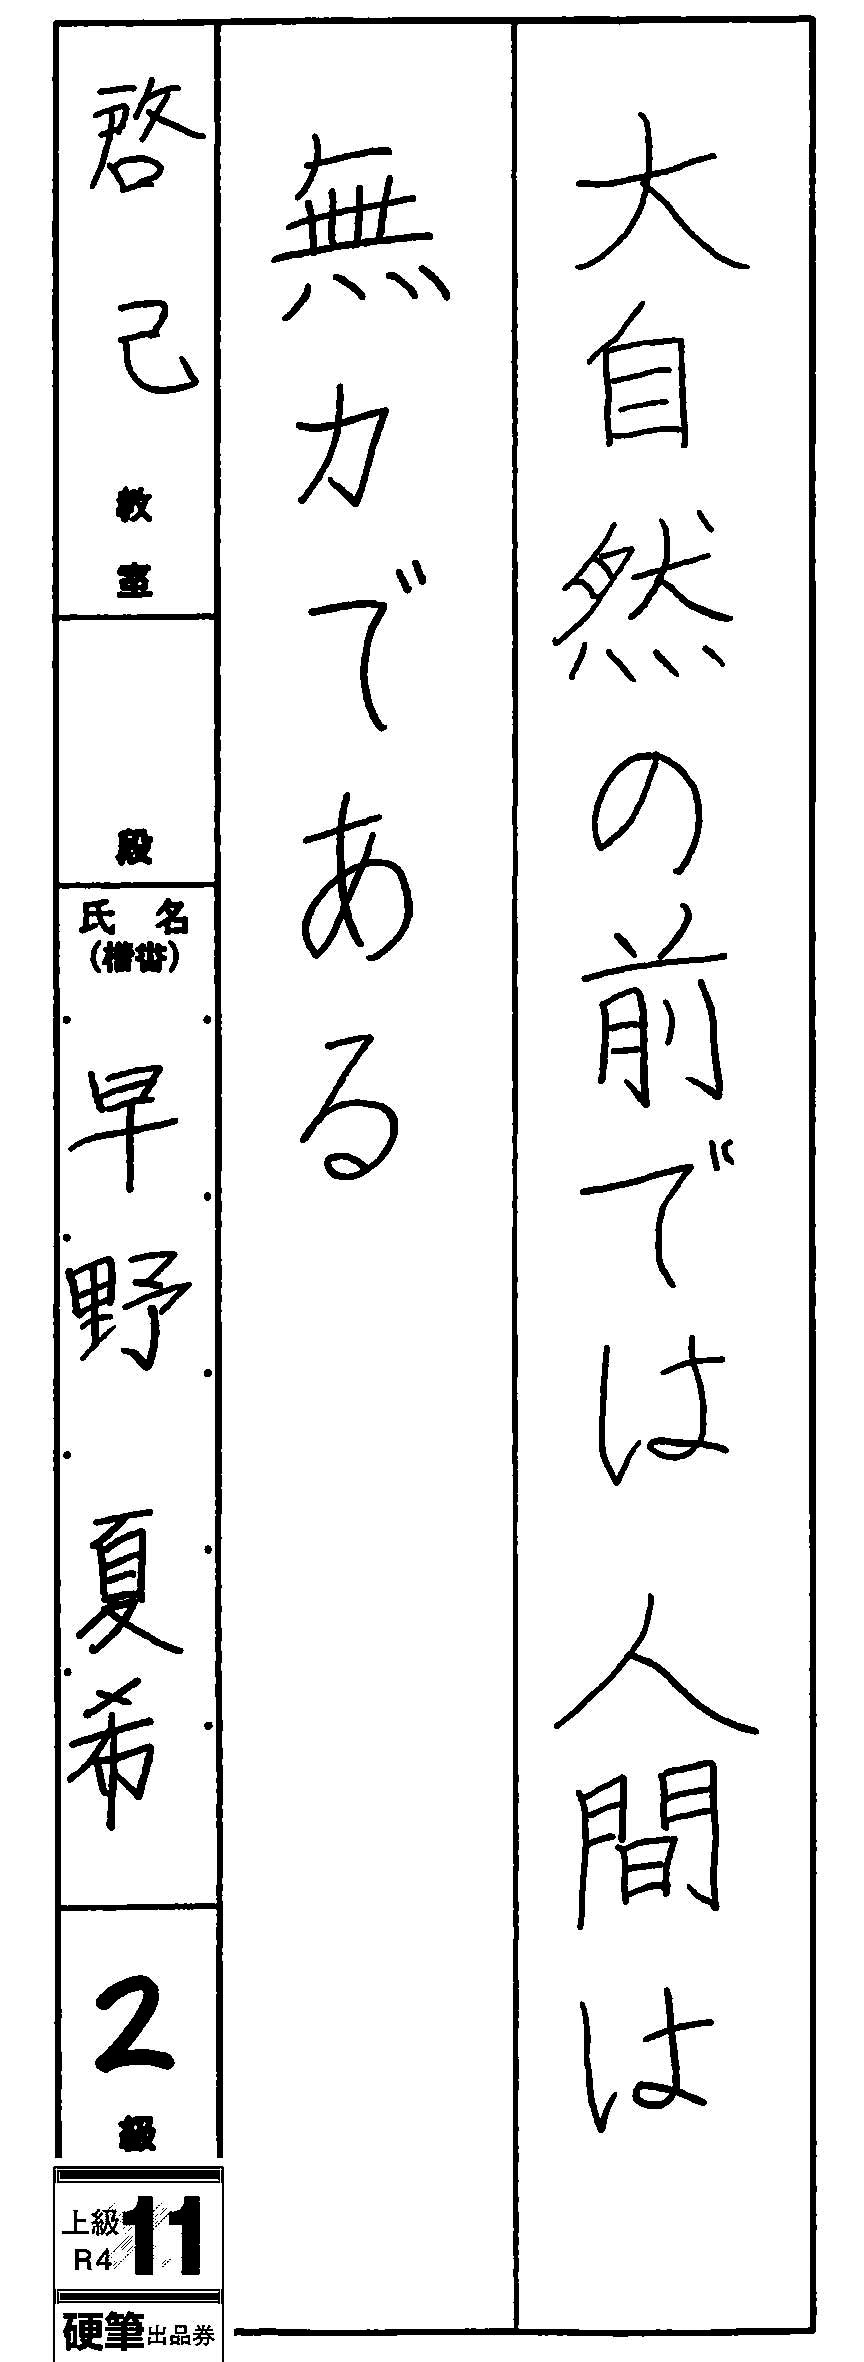 大自然の前では人間は
無力である
啓己教室
段
氏名
(楷書)
早野夏希
2級
上級
R4
11
硬筆出品券